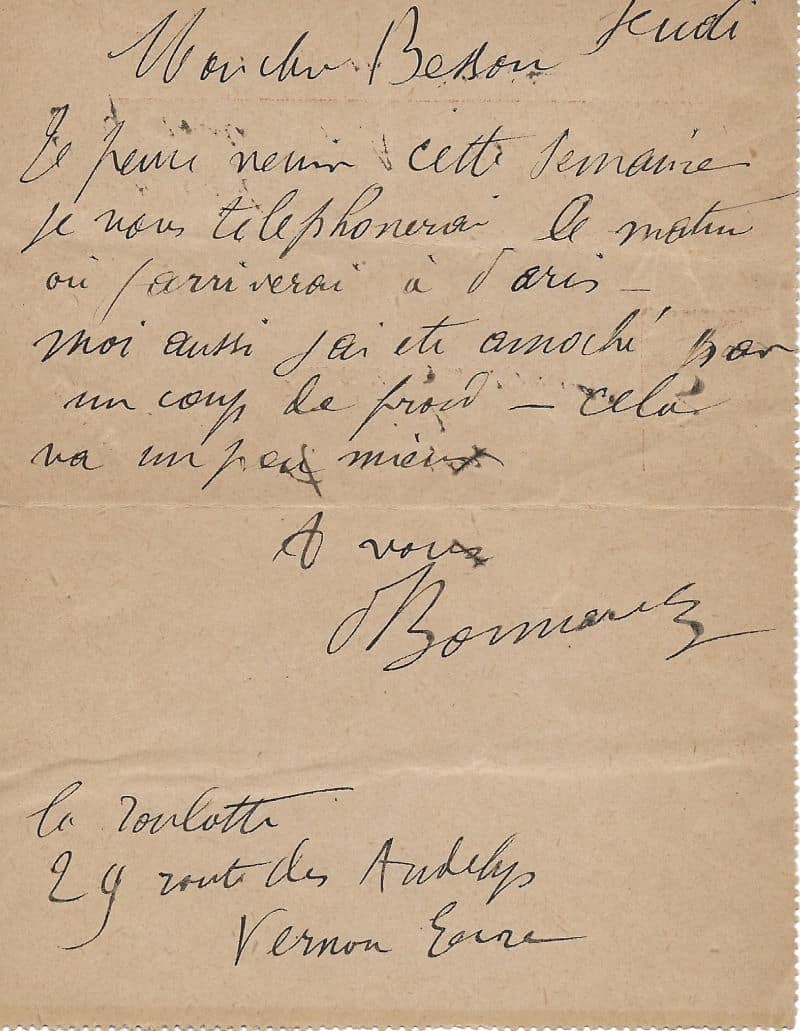 Jeudi
Mon cher Besson
Je pense venir cette semaine
je vous telephonerai le matin
où j'arriverai à Paris –
moi aussi j'ai ete amoché par
un coup de froid – cela
va un peu mieux
A vous
PBonnard
la roulotte
29 route des Andelys
Vernon Eure